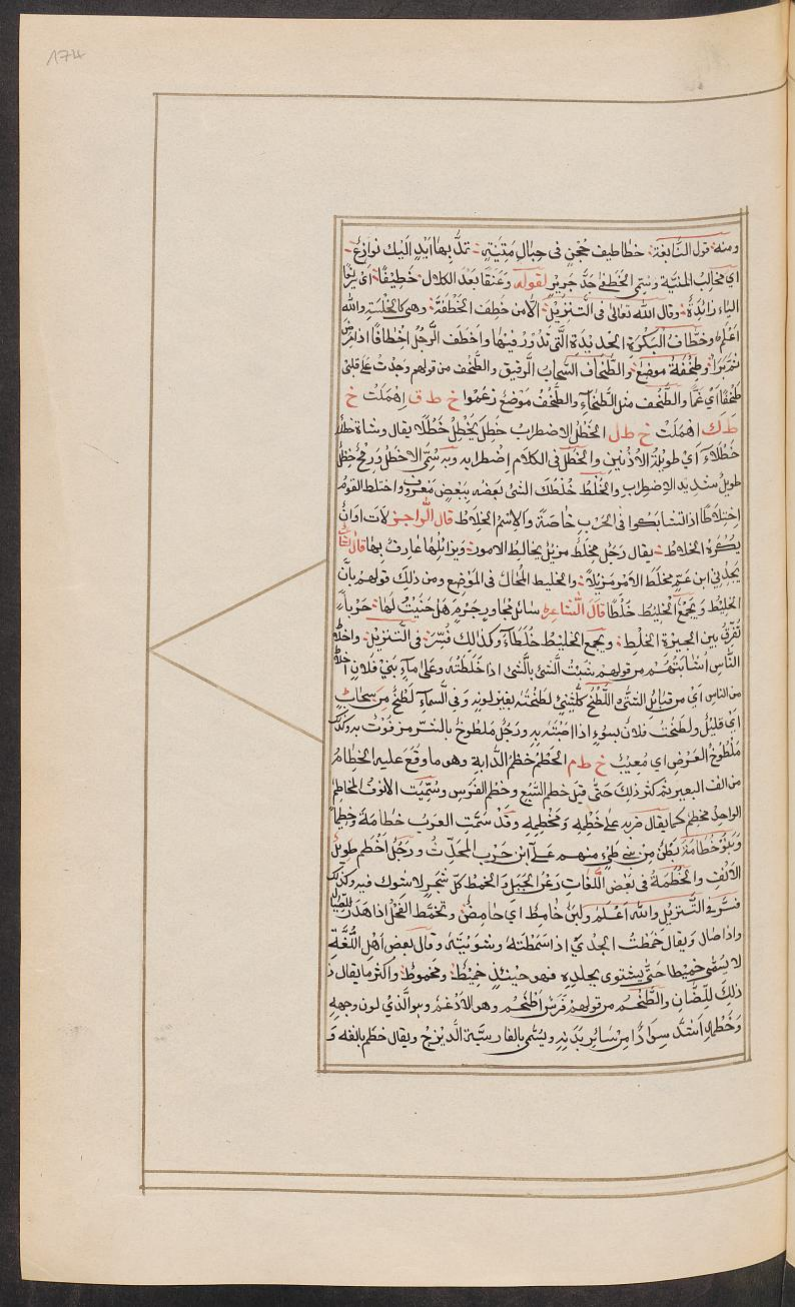 ١٧٤
ومنه قول النابغة خطاطيف حجن في حبال متينة تمد بها أيد اليك نوازع
اي مخالب المنية وسمي الخطفى جد جرير لقوله وعنقا بعد الكلال خطيفا اي سريعا
الياء زائدة وقال الله تعالى في التنزيل الا من خطف الخطفة وهي كالخلسة والله
اعلم وخطاف البكرة الحديدة التي تدور فيها واخطف الرجل اخطافا اذا مرض
ثم برا وطخفة موضع والطخاف السحاب الرقيق والطخف من قولهم وجدت على قلبي
طخفا اي غما والطخف مثل الطخاء والطخف موضع زعموا خ ط ق اهملت خ
ط ك اهملت خ ط ل الخطل الاضطراب خطل يخطل خطلا يقال وشاة خطلاء
خطلاء اي طويلة الاذنين والخطل في الكلام اضطرابه وبه سمي الاخطل ورمح خطل
طويل شديد الاضطراب والخلط خلطك الشئ بعضه ببعض معروف واختلط القوم
اختلاطا اذا تشابكوا في الحرب خاصة والاسم الخلاط قال الراجز لات اوان
يكره الخلاط يقال رجل مخلط مزيل يخالط الامور ويزائلها عارف بها قال الشاعر
يجدني ابن عم مخلط الامر مزيلا والخليط المحال في الموضع ومن ذلك قولهم بان
الخليط ويجمع الخليط خلطا قال الشاعر سائل مجاور جرم هل جنيت لها حربا
تفرق بين الجيرة الخلط ويجمع الخليط خلطاء وكذلك فسر في التنزيل واخلاط
الناس اشابتهم من قولهم شبت الشئ بالشئ اذا خلطته وعلى ماء بني فلان اخلاط
من الناس اي من قبائل شتى واللطخ كل شئ لطخته بغير لونه وفي السماء لطخ من سحاب
اي قليل ولطخت فلان بسوء اذا اصبته به ورجل ملطوخ بالشر مزفوت به وكذلك
ملطوخ العرض اي معيب خ ط م الخطم خطم الدابة وهو ما وقع عليه الخطام
من انف البعير ثم كثر ذلك حتى قيل خطم السبع وخطم الفرس وسميت الانوف المخاطم
الواحد مخطم كما يقال ضربه على خطمه ومخطمه وقد سمت العرب خطامة وخطيما
وبنو خطامة بطن من بني طي منهم على ابن حرب المحدث ورجل اخطم طويل
الانف والخطمة في بعض اللغات رعن الجبل والخمط كل شجر لا شوك فيه وكذلك
فسر في التنزيل والله اعلم ولبن خامط اي حامض وتخمط الفحل اذا هدر للصيال
واذا صال ويقال خمطت الجدي اذا سمطته وشويته وقال بعض اهل اللغة
لا يسمى خميطا حتى يشتوى بجلده فهو حينئذ خميط ومخموط واكثر ما يقال
ذلك للضان والطخم من قولهم فرس اطخم وهو الادغم وهو الذي لون وجهه
وخطمه اشد سوادا من سائر بدنه ويسمى بالفارسية الديزج ويقال خطم بانفه و